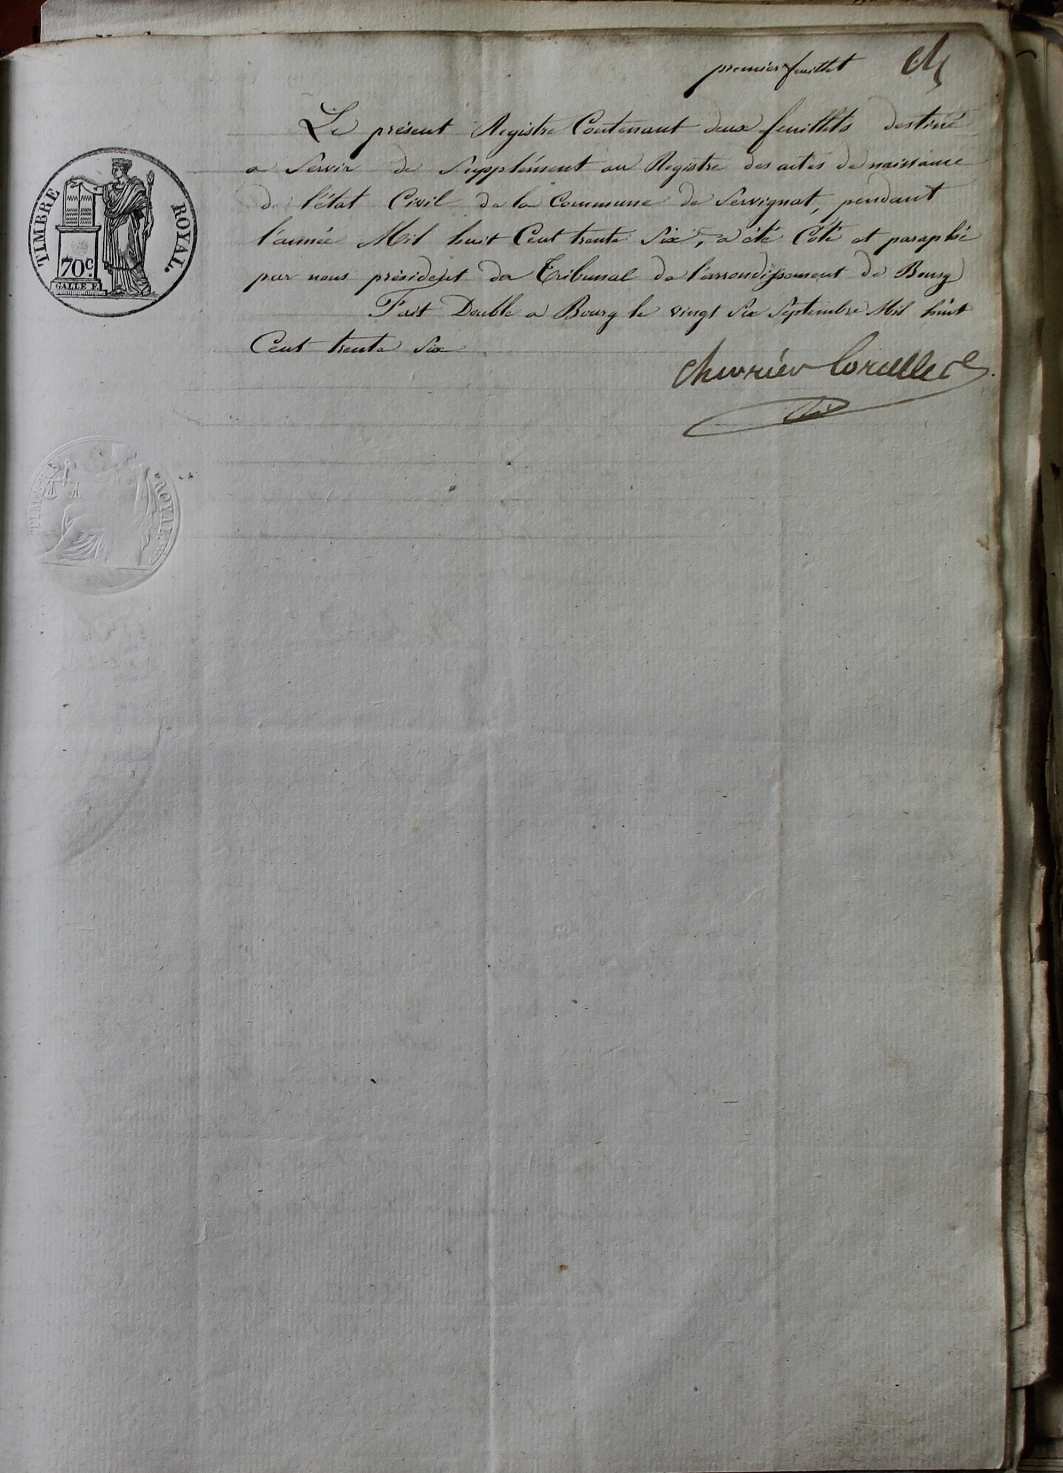 premier feuillet Ch
Le présent Registre Contenant deux feuillets destiné
a Servir de Supplément au Registre des actes de naissance
de l'état Civil de la Commune de Servignat, pendant
l'année Mil huit Cent trente Six, a été Coté et paraphé
par nous président du Tribunal de l'arrondissement de Bourg
Fait Double a Bourg le vingt Six Septembre Mil huit
Cent trente Six
Chevrier Corcelle
TIMBRE ROYAL.
70c
GALLE F.
TIMBRE ROYAL